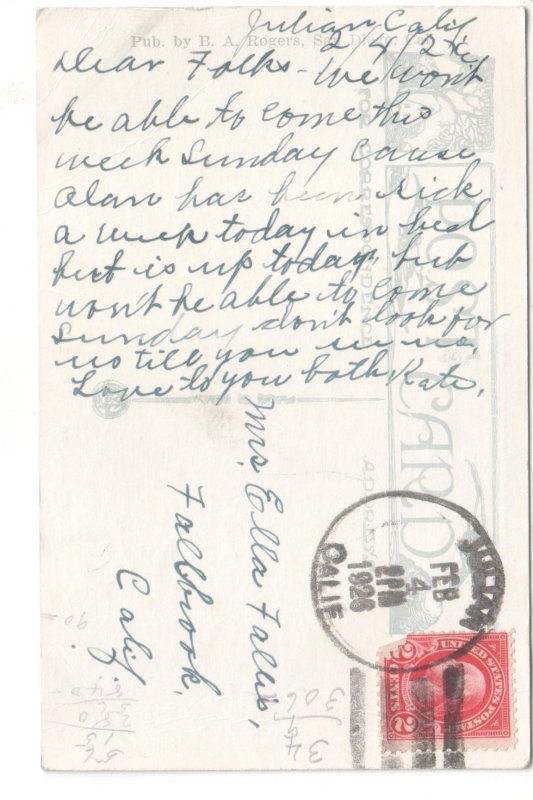 Julian Calif
Pub. by B. A. Rogers, San Diego, Cal.
2/4 26
Dear Folks - We wont
be able to come this
week Sunday cause
Alan has been sick
a week today in bed
but is up today, but
won't be able to come
Sunday dont look for
us till you see us,
Love to you both Kate,
FOR CORRESPONDENCE
POST CARD
ADDRESS
Mrs. Ella Fallis,
Fallbrook,
Calif.
JULIAN
FEB
4
2 PM
1926
CALIF
UNITED STATES POSTAGE
2 CENTS 2
90
306